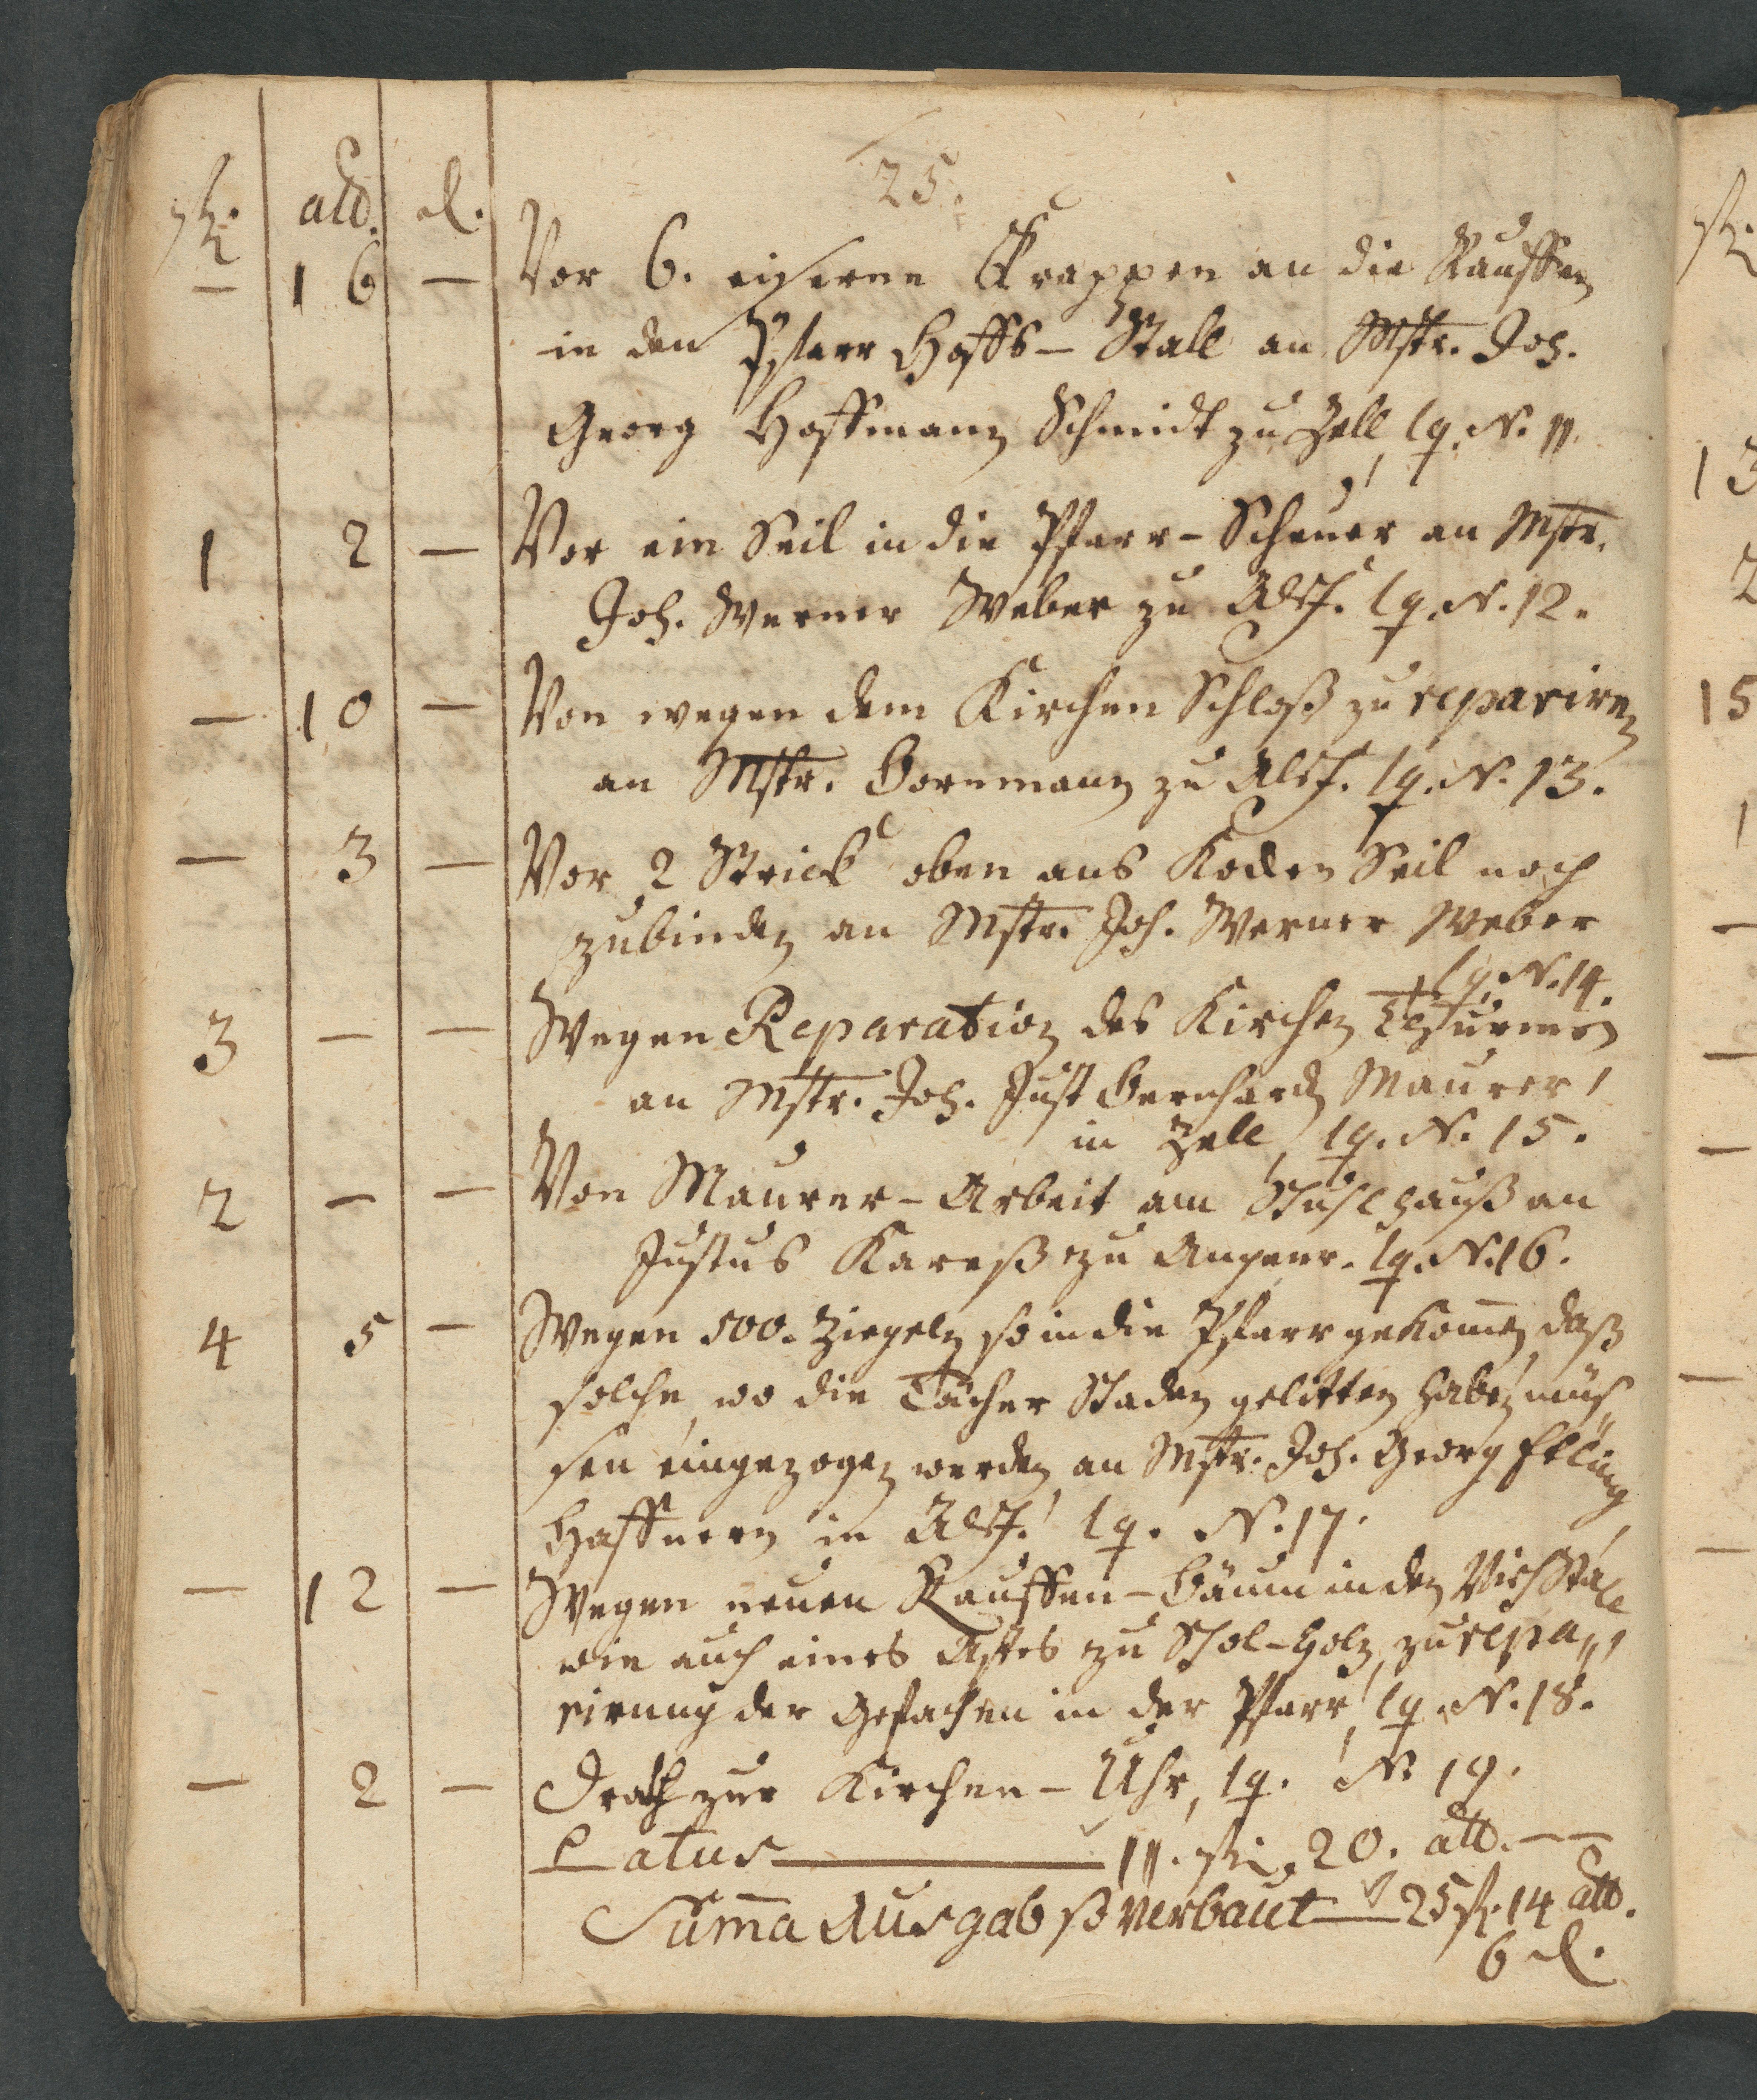 25.
fl. alb. d.
— 16 — Vor 6. eiserne Krappen an die Rauffen
in den Pfarr Hoffs-Stall an Mstr. Joh.
Georg Hoffmann Schmidt zu Zell, lq. N. 11.
1 2 — Vor ein Seil in die Pfarr-Scheuer an Mstr.
Joh. Werner Weber zu Alsf. lq. N. 12.
— 10 — Von wegen dem Kirchen Schloß zu repariren
an Mstr. Bornmann zu Alsf. lq. N. 13.
— 3 — Vor 2 Strick oben ans Kloken Seil noch
zubinden an Mstr. Joh. Werner Weber
lq. N. 14.
3 — — Wegen Reparation des Kirchen Thurmes
an Mstr. Joh. Just Bernhard Maurer,
in Zell, lq. N. 15.
2 — — Von Maurer-Arbeit am Schulhauß an
Justus Kareß zu Angenr. lq. N. 16.
4 5 — Wegen 500. Ziegeln so in die Pfarr gekom̄en, daß
solche, wo die Tächer Schaden gelitten haben, müs,
sen eingezogen werden, an Mstr. Joh. Georg
Haffnern in Alsf. lq. N. 17.
— 12 — Wegen neuen Rauffen-Bäum in den Viehstall
wie auch eines Astes zu Schol-Holz, zu repa,,
rirung der Gefachen in der Pfarr, lq. N. 18.
— 2 — Drath zur Kirchen-Uhr, lq. N. 19.
Latus — 11. fl. 20. alb. —
Sum̄a Ausgab ß verbaut — 25 fl. 14 alb.
6 d.